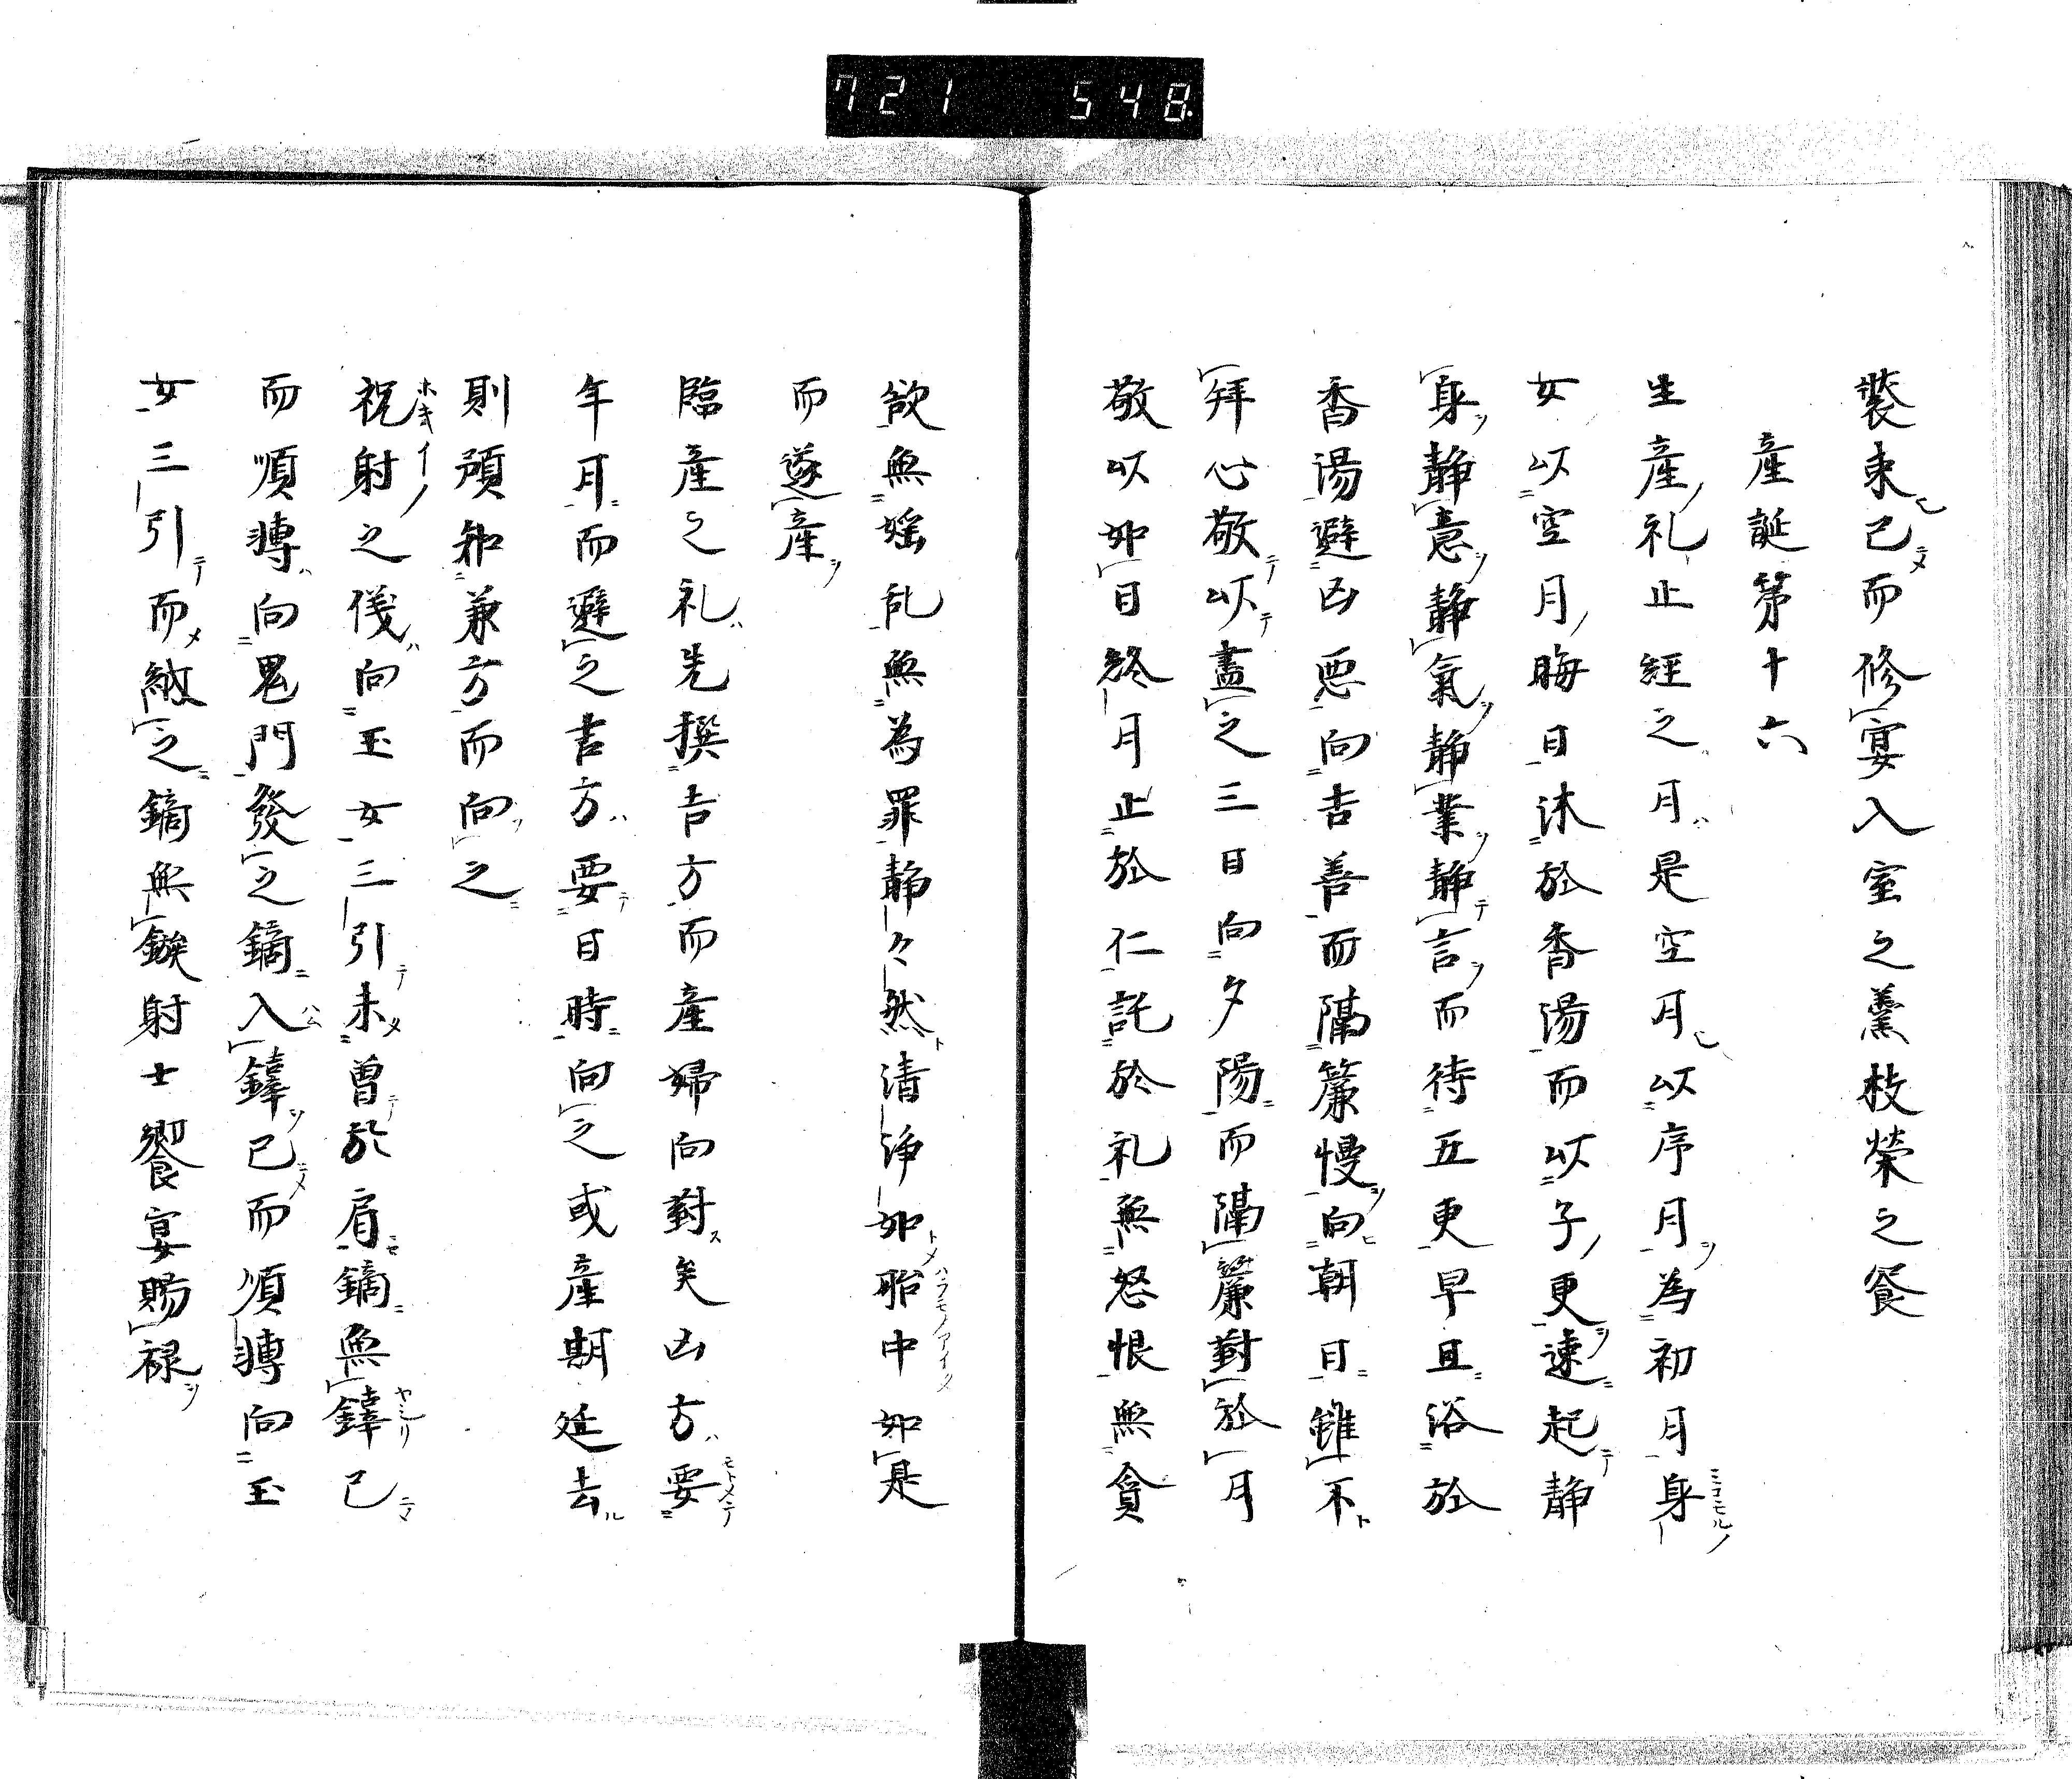 721 548
裝束已而修宴入室之羹枚榮之餐
産誕第十六
生産礼止經之月是空月以序月為初月身
女以空月晦日沐於香湯而以子更速起静
身静意静氣静業静言而待五更早旦浴於
香湯避凶悪向吉善而隔簾慢向朝日雖不
拜心敬以盡之三日向夕陽而隔簾對於月
敬以如日終月止於仁託於礼無怒恨無貪
欲無婬乱無為罪静々然清浄如胎中如是
而遂産
臨産之礼先撰吉方而産婦向對矣凶方要
年月而避之吉方要日時向之或産期延去
則預知兼方而向之
祝射之儀向玉女三引未曽於肩鏑無鏲已
而順轉向鬼門發之鏑入鏲已而順轉向玉
女三引而納之鏑無鏃射士饗宴賜禄